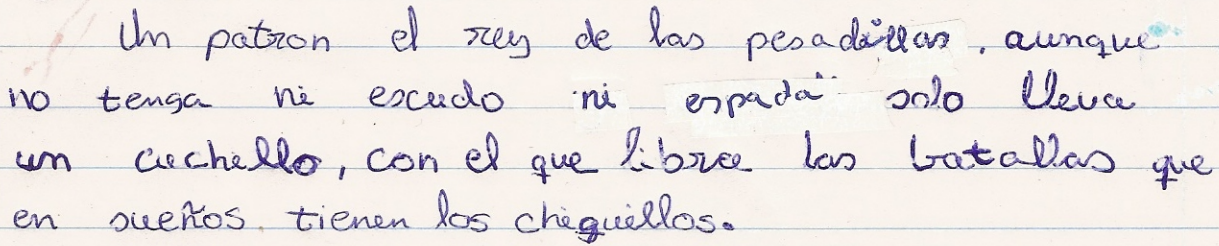 Un patron el rey de las pesadillas, aunque
no tenga ni escudo ni espada solo lleva
un cuchello, con el que libra las batallas que
en sueños tienen los chiguillos.